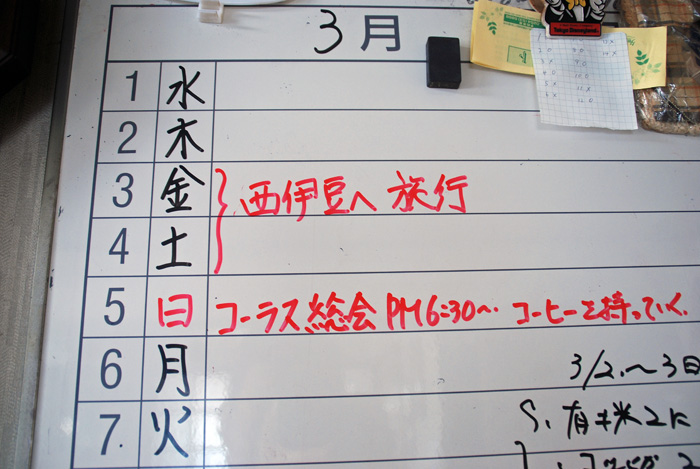 3月
1 水
2 木
3 金 西伊豆へ 旅行
4 土
5 日 コーラス総会 PM6:30〜 コーヒーを持っていく.
6 月 3/2.〜3日
7 火